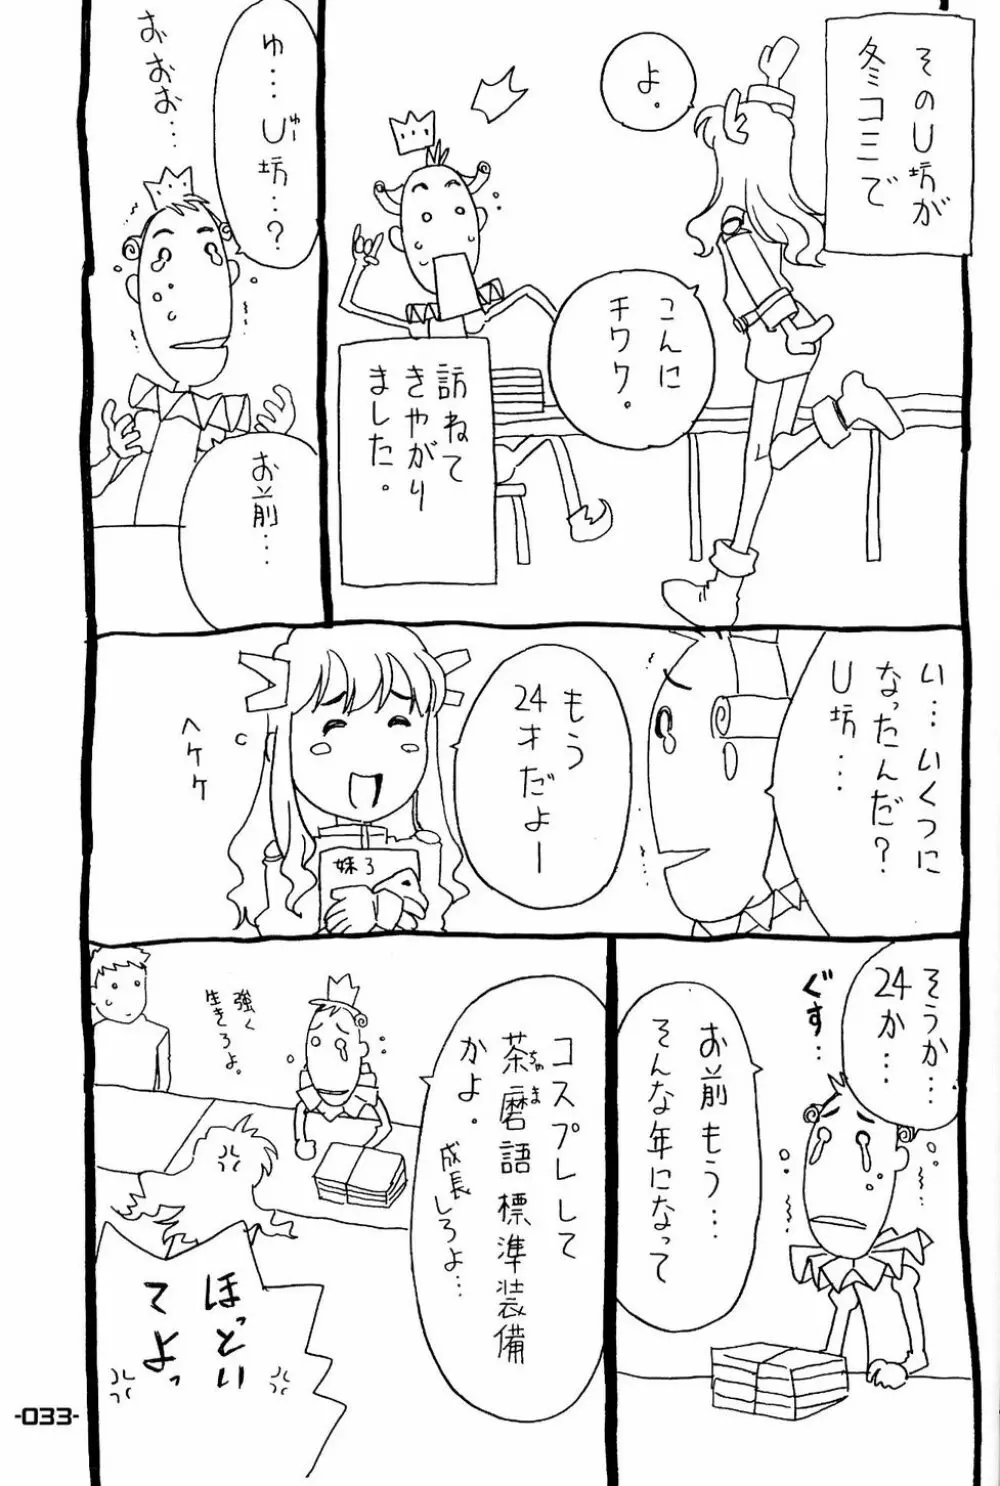 そのU坊が
冬コミで
よ。
こんに
チワワ。
訪ねて
きやがり
ました。
ゆ…U坊…?
じゅー
おおお…
お前…
い…いくつに
なったんだ?
U坊…
もう
24才だよー
ヘケケ
妹3
そうか…
24か…
ぐす…
お前もう…
そんな年になって
コスプレして
茶磨語標準装備
ちゃま
かよ。
成長
しろよ…
強く
生きろよ。
ほっとい
てよっ
-033-